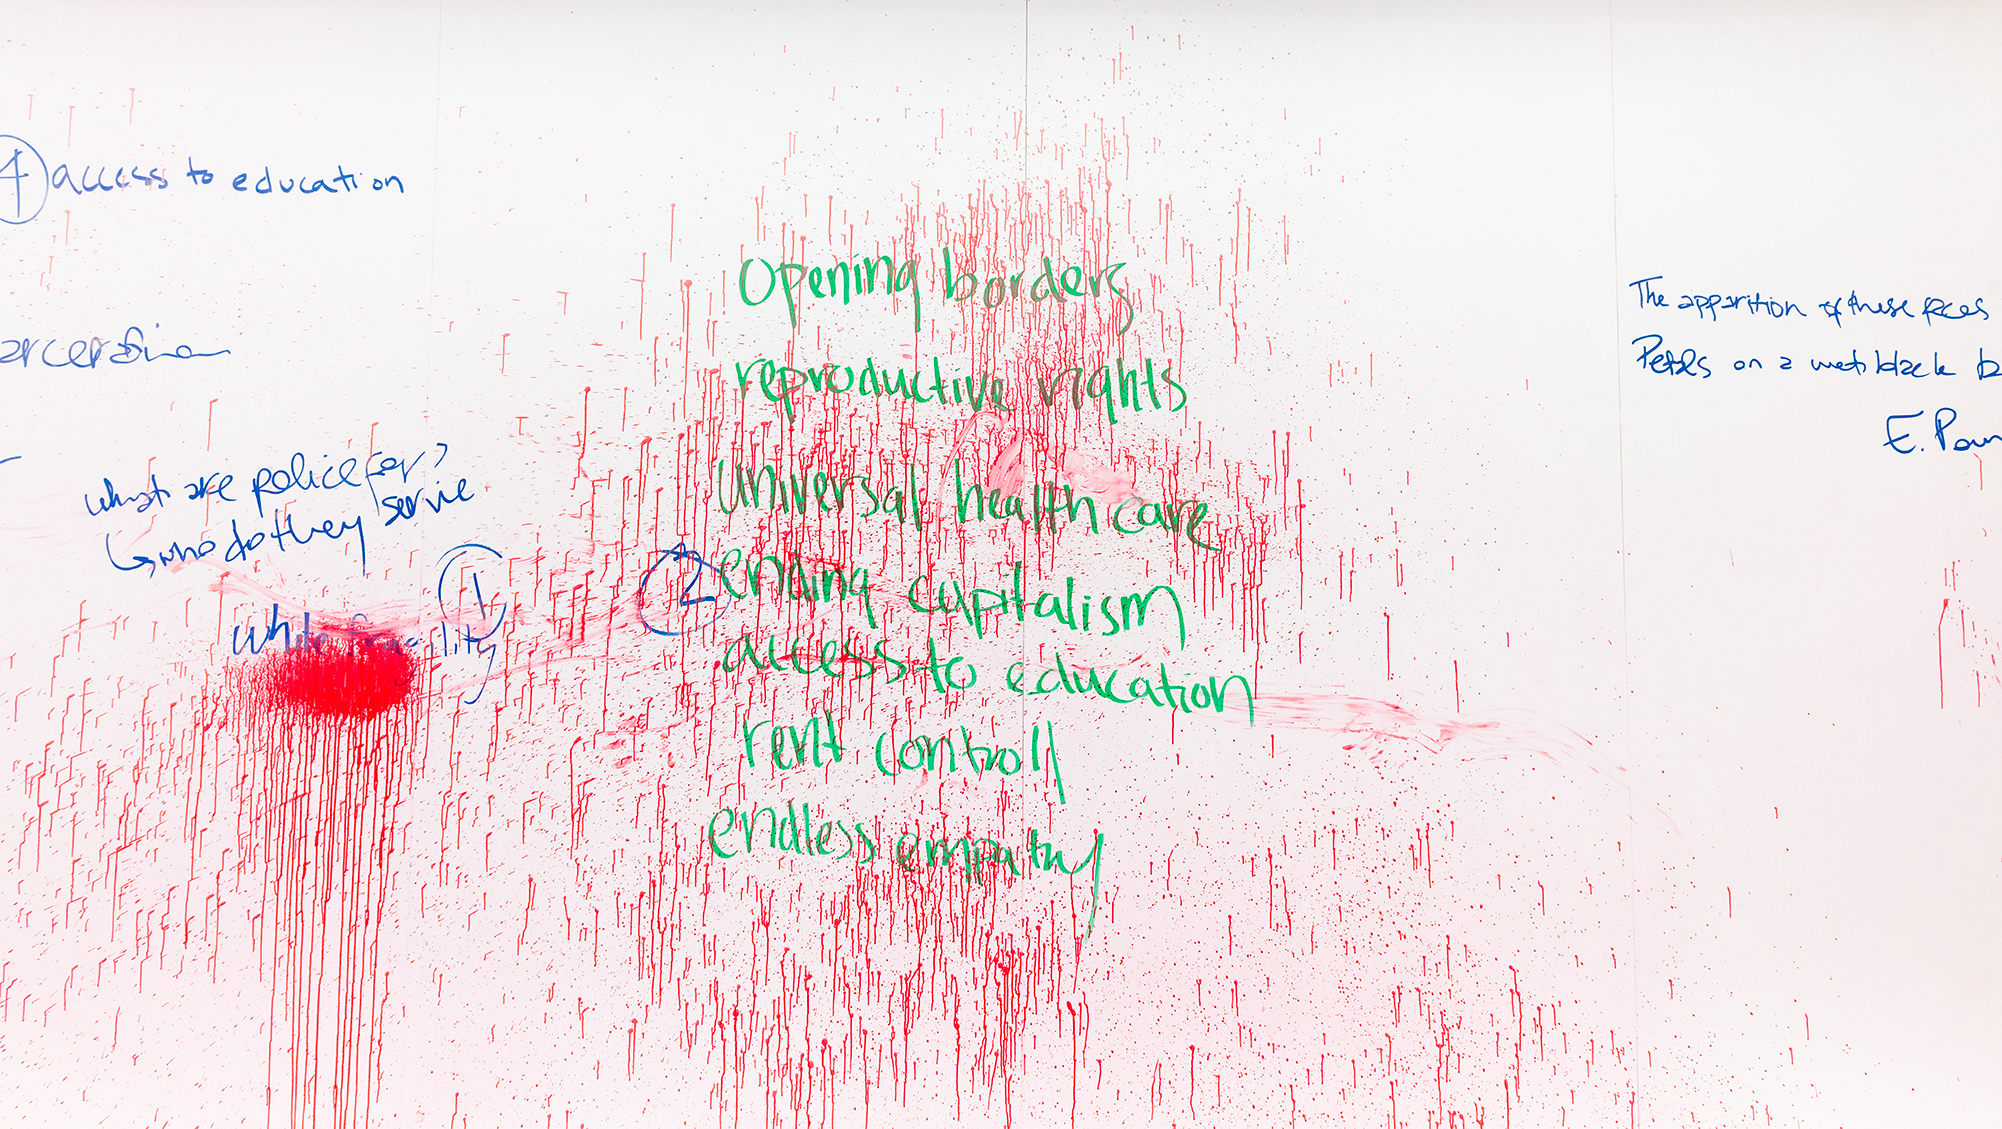 4 access to education
what are police for?
↳ who do they serve
1
white fragility
Opening borders
reproductive rights
universal health care
2 ending capitalism
access to education
rent controll
endless empathy
The apparition of these faces
Petals on a wet, black b
E. Poun